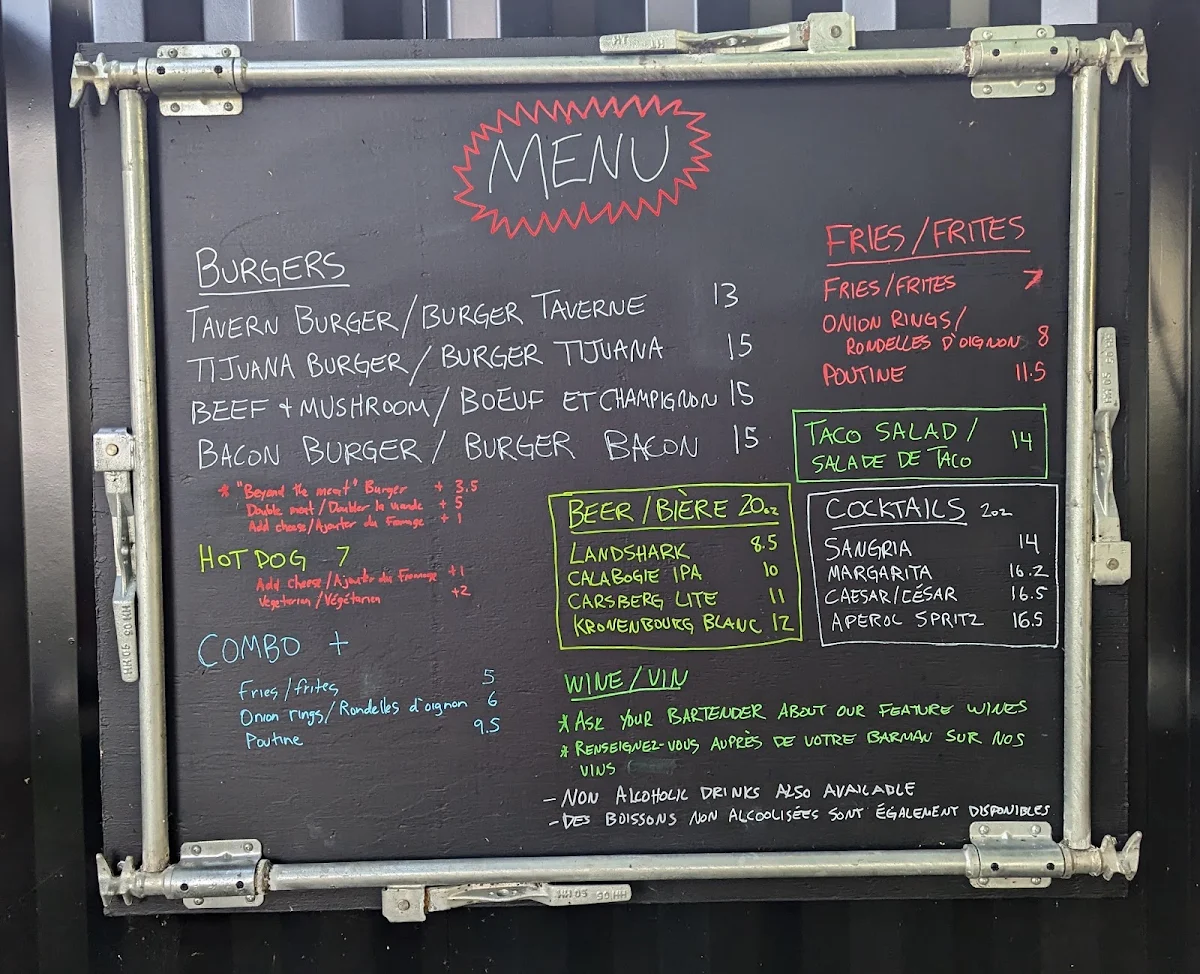 MENU
BURGERS
TAVERN BURGER/BURGER TAVERNE 13
TIJUANA BURGER/BURGER TIJUANA 15
BEEF + MUSHROOM/BOEUF ET CHAMPIGNON 15
BACON BURGER/BURGER BACON 15
* "Beyond the meat" Burger + 3.5
Double meat/Doubler la viande + 5
Add cheese/Ajouter du Fromage + 1
HOT DOG 7
Add cheese/Ajouter du Fromage +1
Vegetarian/Végétarien +2
COMBO +
Fries/frites 5
Onion rings/Rondelles d'oignon 6
Poutine 9.5
FRIES/FRITES
FRIES/FRITES 7
ONION RINGS/
RONDELLES D'OIGNON 8
POUTINE 11.5
TACO SALAD/ 14
SALADE DE TACO
BEER/BIÈRE 20oz
LANDSHARK 8.5
CALABOGIE IPA 10
CARSBERG LITE 11
KRONENBOURG BLANC 12
COCKTAILS 2oz
SANGRIA 14
MARGARITA 16.2
CAESAR/CÉSAR 16.5
APEROL SPRITZ 16.5
WINE/VIN
* ASK YOUR BARTENDER ABOUT OUR FEATURE WINES
* RENSEIGNEZ-VOUS AUPRÈS DE VOTRE BARMAN SUR NOS
VINS
- NON ALCOHOLIC DRINKS ALSO AVAILABLE
- DES BOISSONS NON ALCOOLISÉES SONT ÉGALEMENT DISPONIBLES